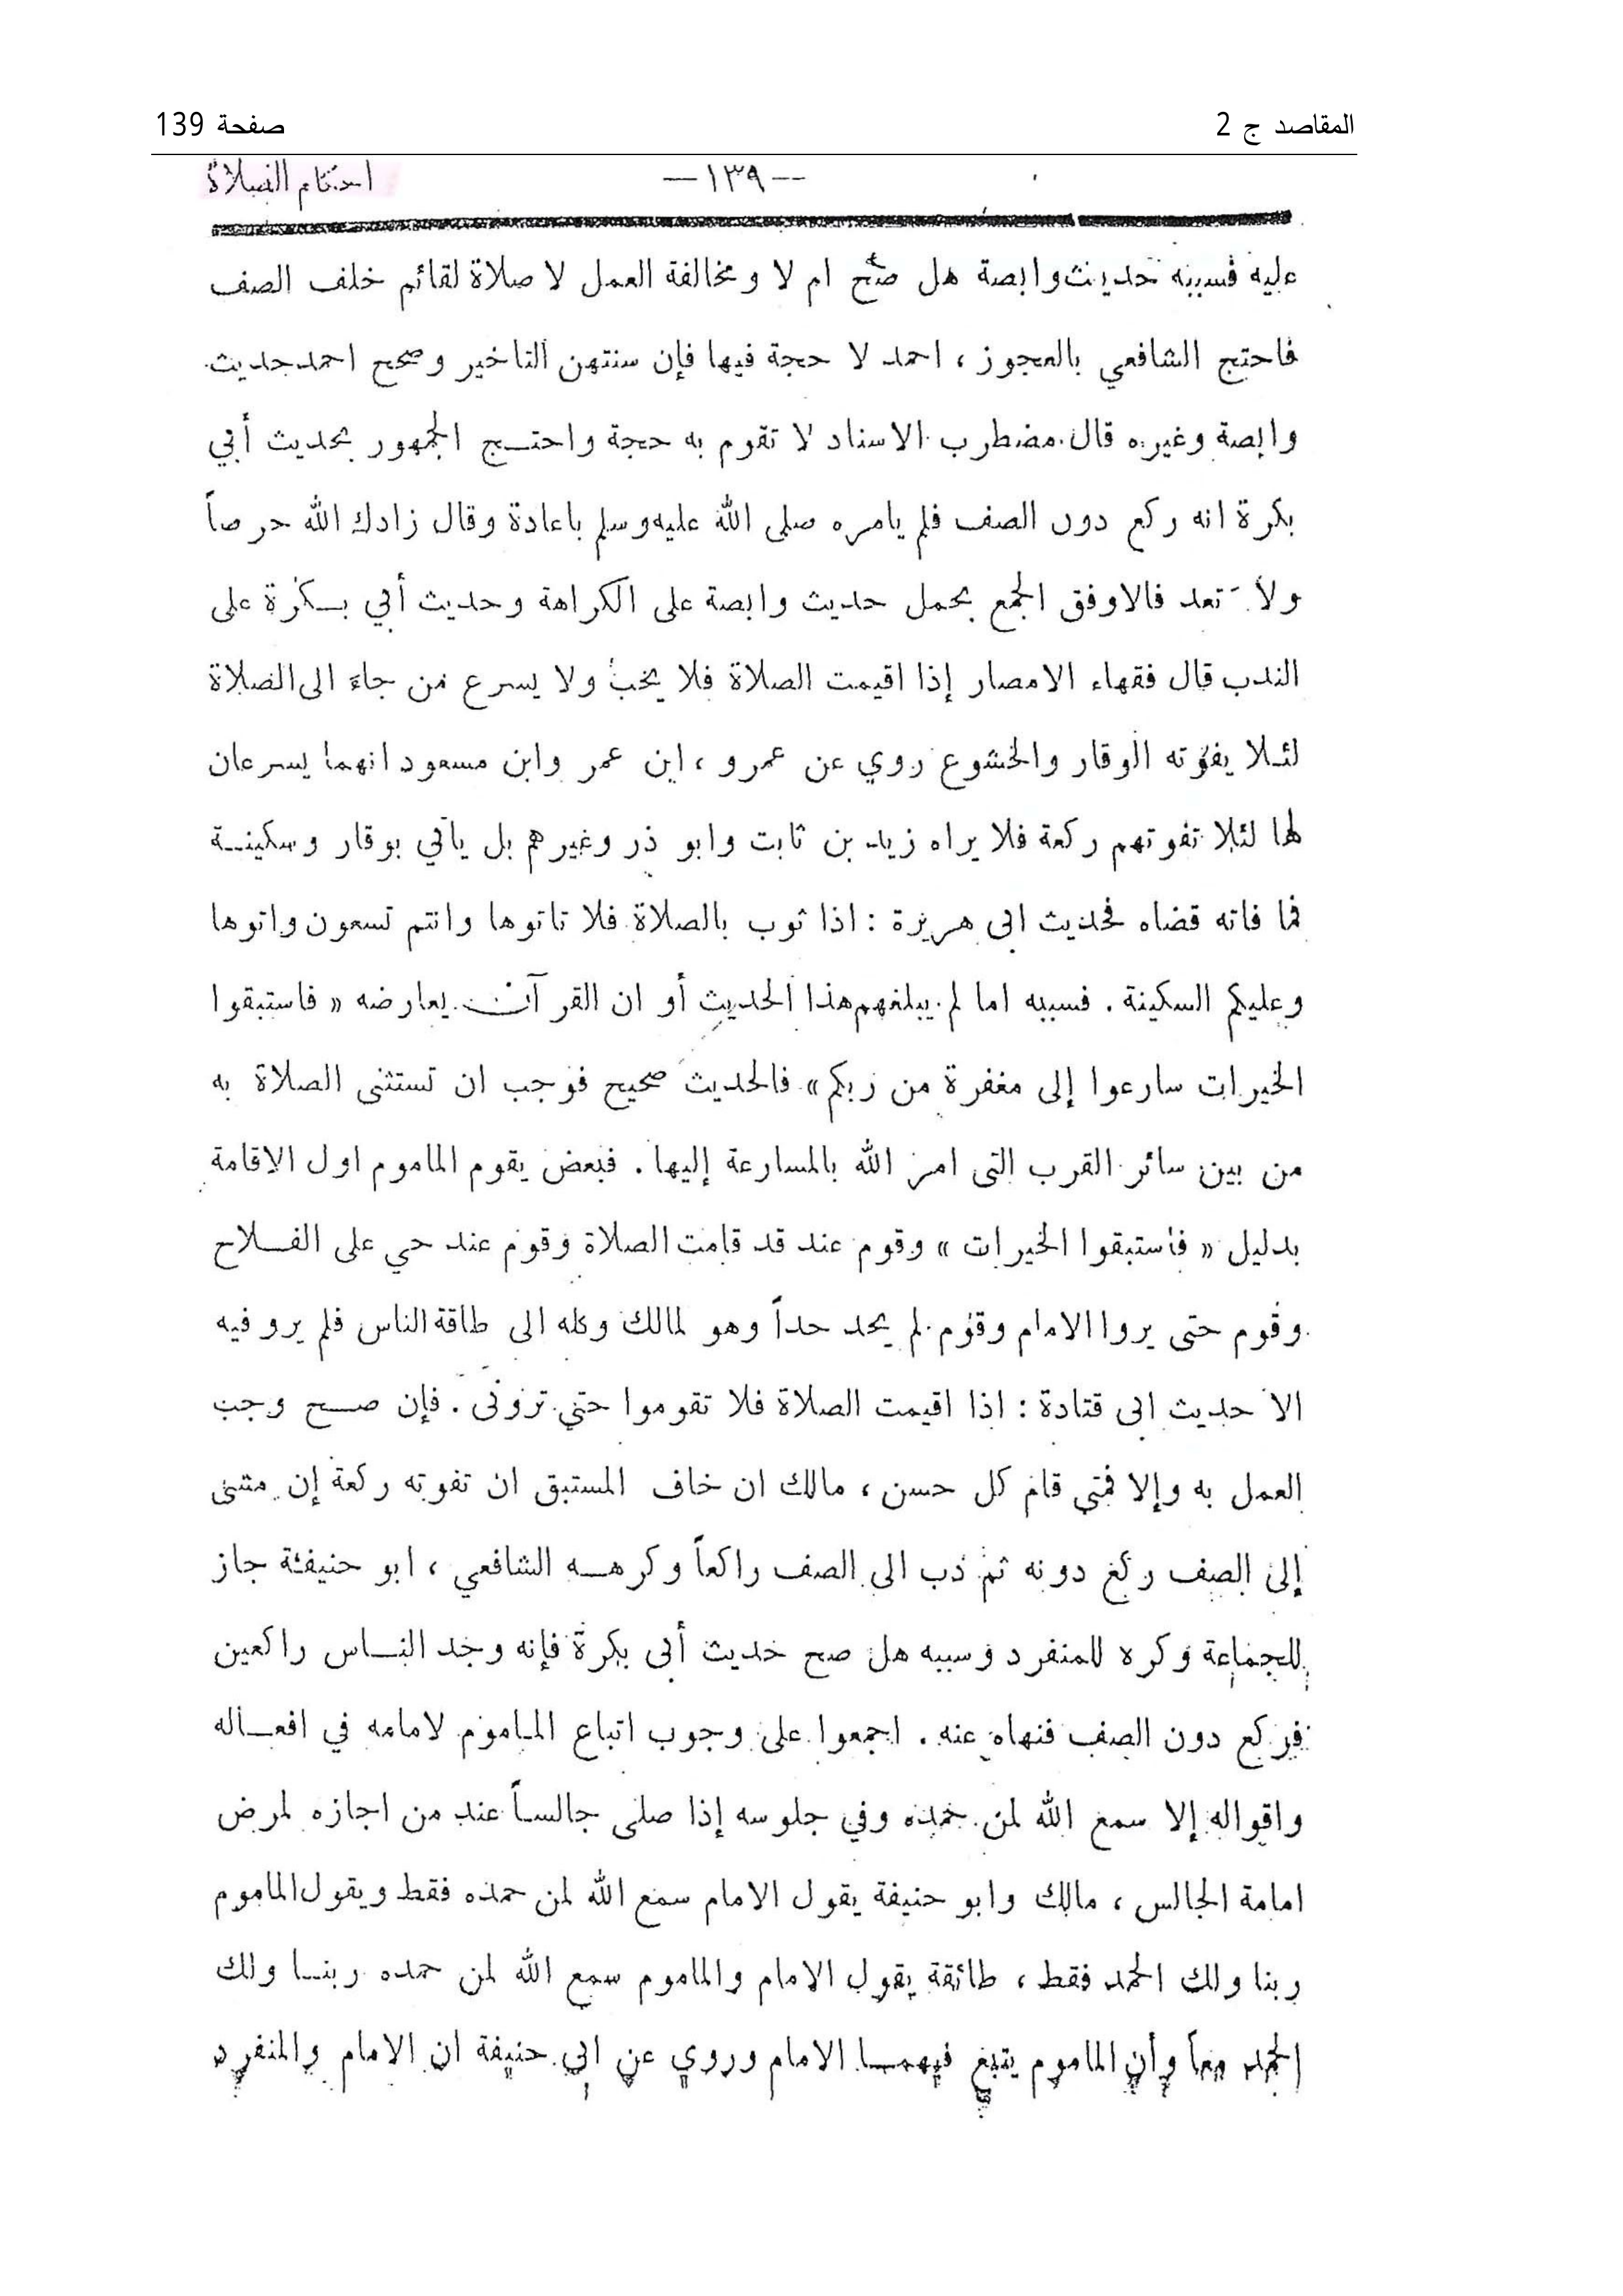 المقاصد ج 2
صفحة 139
احكام الصلاة
—١٣٩--
عليه فسببه حديث وابصة هل صح ام لا ومخالفة العمل لا صلاة لقائم خلف الصف
فاحتج الشافعي بالعجوز ، احمد لا حجة فيها فإن سنتهن التاخير وصحح احمد حديث
وابصة وغيره قال مضطرب الاسناد لا تقوم به حجة واحتج الجمهور بحديث أبي
بكرة انه ركع دون الصف فلم يامره صلى الله عليه وسلم باعادة وقال زادك الله حرصاً
ولا تعد فالاوفق الجمع بحمل حديث وابصة على الكراهة وحديث أبي بكرة على
الندب قال فقهاء الامصار إذا اقيمت الصلاة فلا يخب ولا يسرع من جاء الى الصلاة
لئلا يفوته الوقار والخشوع روي عن عمرو ، ابن عمر وابن مسعود انهما يسرعان
لها لئلا تفوتهم ركعة فلا يراه زيد بن ثابت وابو ذر وغيرهم بل ياتي بوقار وسكينة
فما فاته قضاه فحديث ابى هريرة : اذا ثوب بالصلاة فلا تاتوها وانتم تسعون واتوها
وعليكم السكينة . فسببه اما لم يبلغهم هذا الحديث أو ان القرآن يعارضه « فاستبقوا
الخيرات سارعوا إلى مغفرة من ربكم » فالحديث صحيح فوجب ان تستثنى الصلاة به
من بين سائر القرب التى امر الله بالمسارعة إليها . فبعض يقوم الماموم اول الاقامة
بدليل « فاستبقوا الخيرات » وقوم عند قد قامت الصلاة وقوم عند حي على الفلاح
وقوم حتى يروا الامام وقوم لم يحد حداً وهو لمالك وكله الى طاقة الناس فلم يرو فيه
الا حديث ابى قتادة : اذا اقيمت الصلاة فلا تقوموا حتى ترونى . فإن صح وجب
العمل به وإلا فمتى قام كل حسن ، مالك ان خاف المستبق ان تفوته ركعة إن مشى
إلى الصف ركع دونه ثم دب الى الصف راكعاً وكرهه الشافعي ، ابو حنيفة جاز
للجماعة وكره للمنفرد وسببه هل صح حديث أبى بكرة فإنه وجد الناس راكعين
فركع دون الصف فنهاه عنه . اجمعوا على وجوب اتباع الماموم لامامه في افعاله
واقواله إلا سمع الله لمن حمده وفي جلوسه إذا صلى جالساً عند من اجازه لمرض
امامة الجالس ، مالك وابو حنيفة يقول الامام سمع الله لمن حمده فقط ويقول الماموم
ربنا ولك الحمد فقط ، طائفة يقول الامام والماموم سمع الله لمن حمده ربنا ولك
الحمد معاً وأن الماموم يتبع فيهما الامام وروي عن ابي حنيفة ان الامام والمنفرد